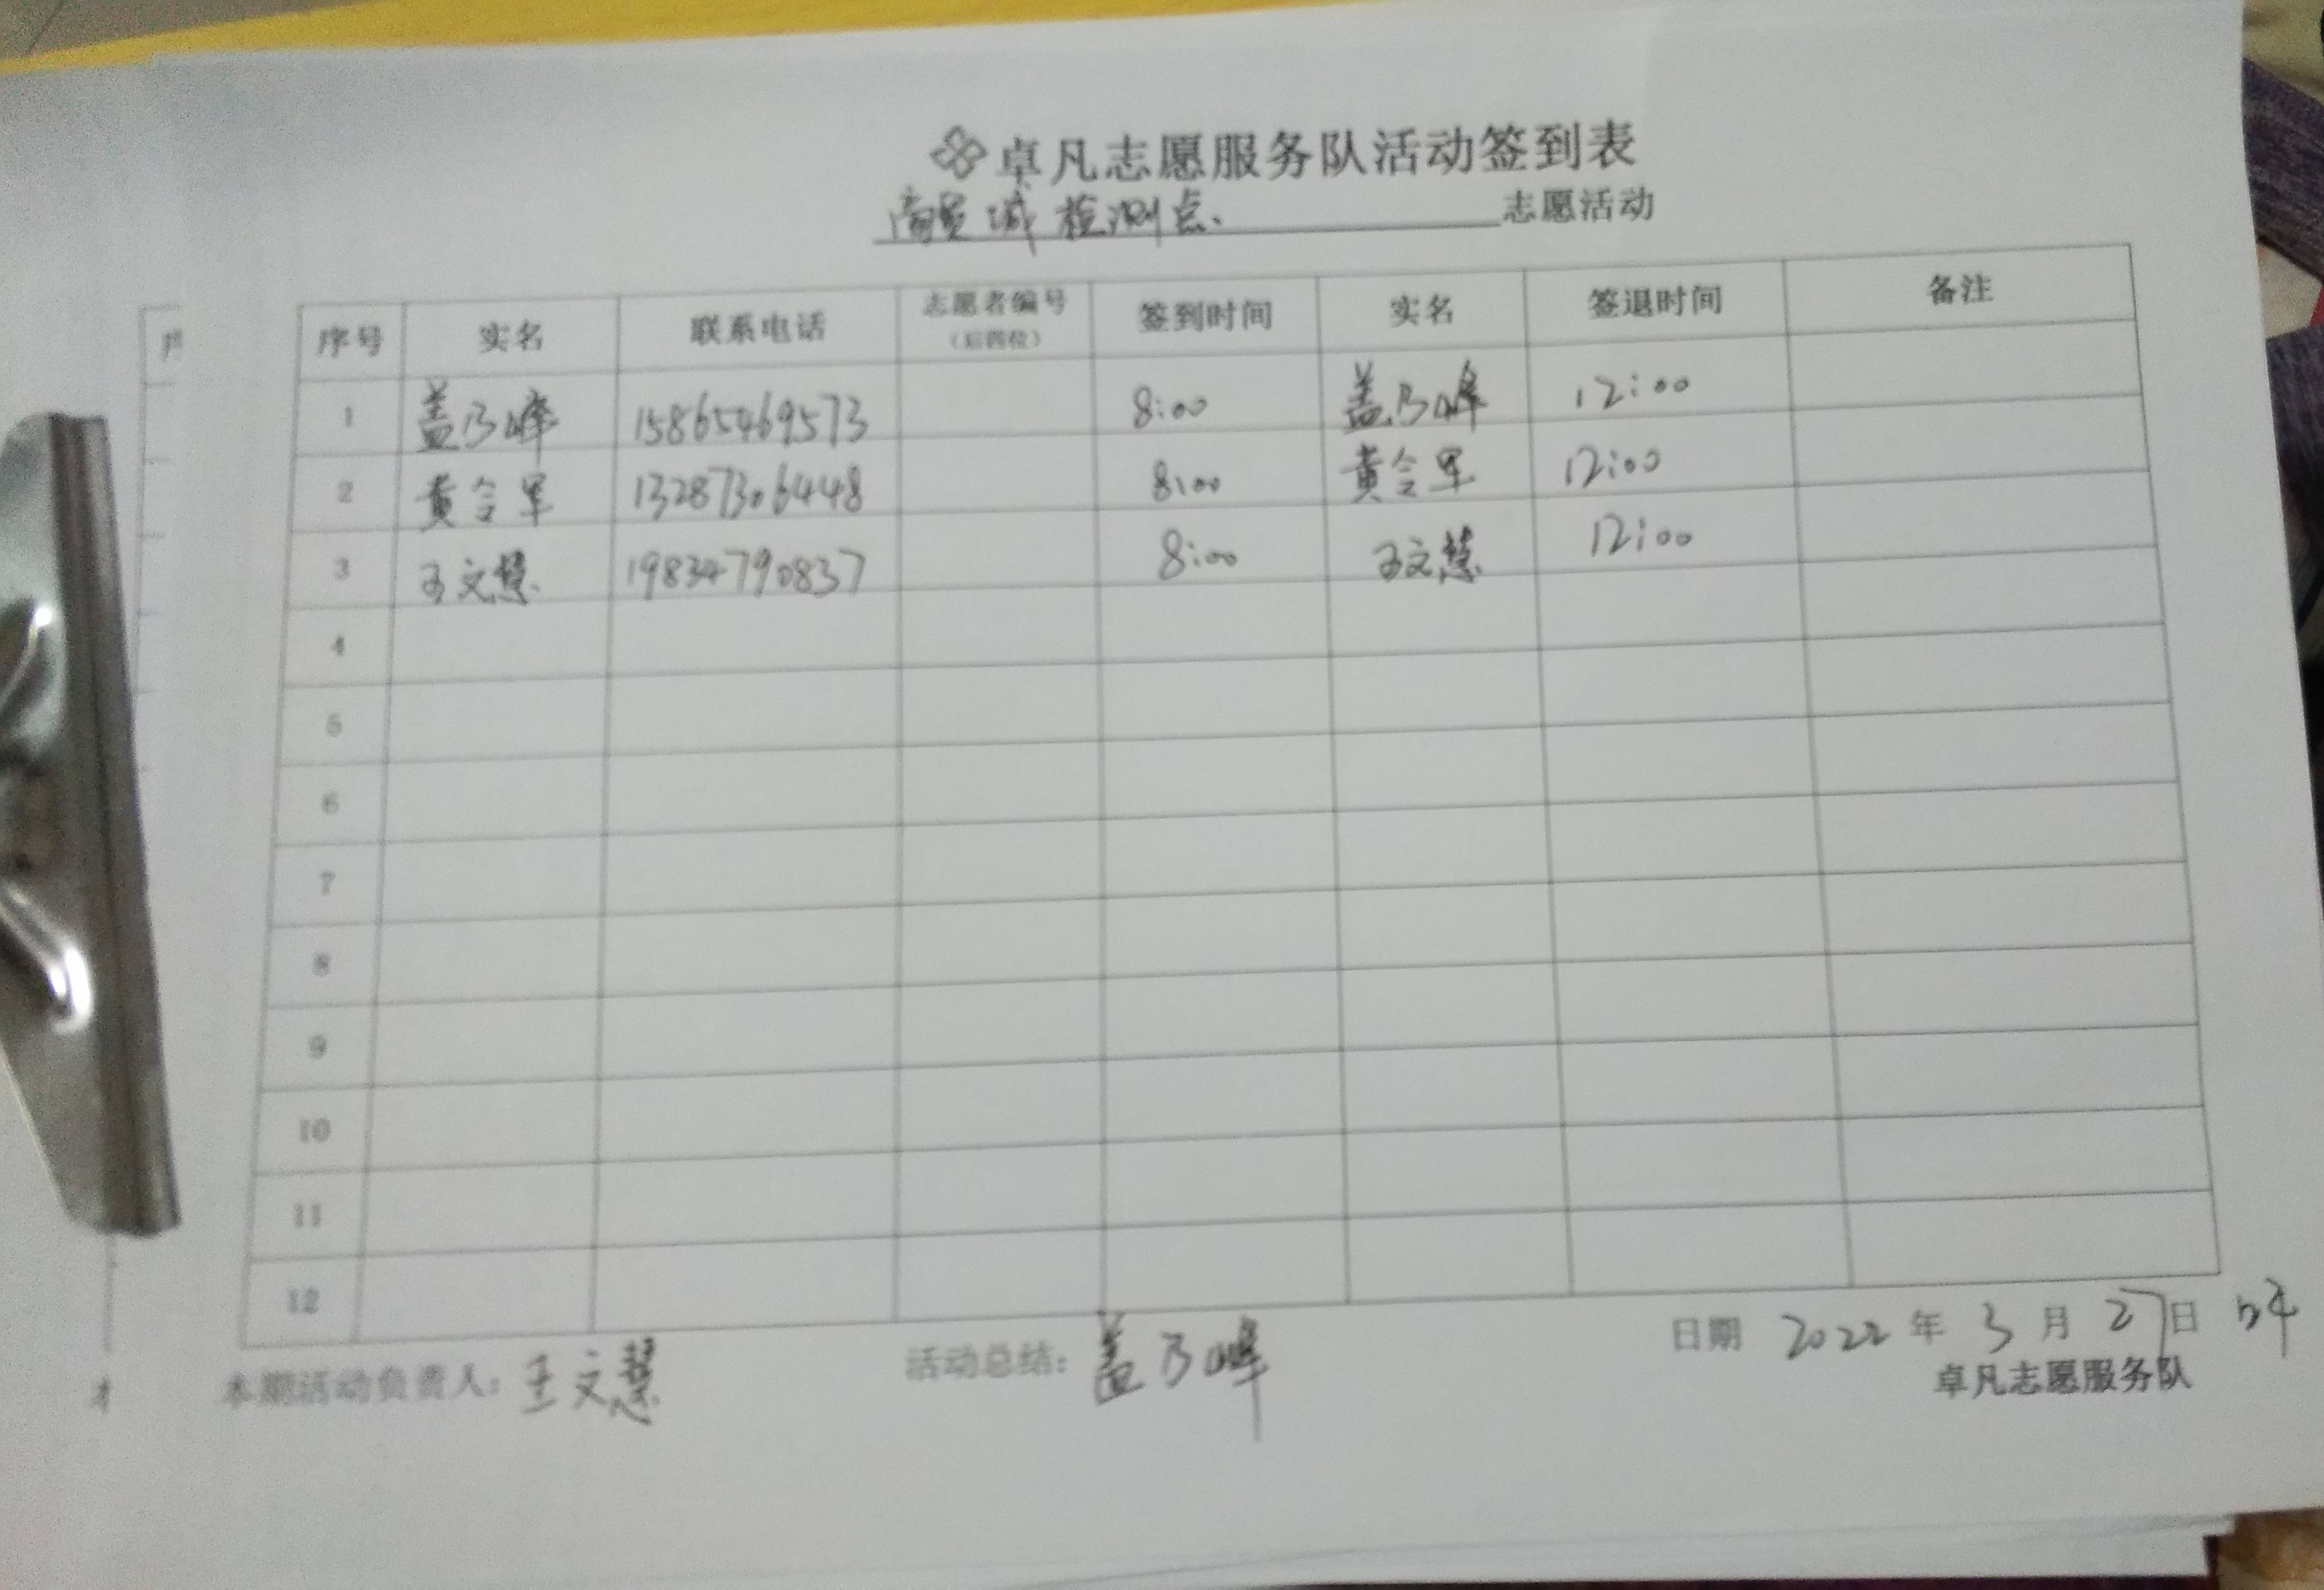 卓凡志愿服务队活动签到表
商贸城检测点、 志愿活动
序号 实名 联系电话 志愿者编号（后四位） 签到时间 实名 签退时间 备注
1 盖乃峰 15865469573 8:00 盖乃峰 12:00
2 黄令军 13287306448 8:00 黄令军 12:00
3 王文慧 19834790837 8:00 王文慧 12:00
4
5
6
7
8
9
10
11
12
本期活动负责人：王文慧 活动总结：盖乃峰 日期 2022 年 3 月 27 日
卓凡志愿服务队